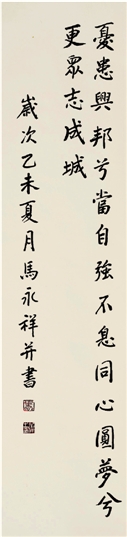 憂患興邦兮當自強不息同心圓夢兮
更眾志成城
歲次乙未夏月馬永祥并書